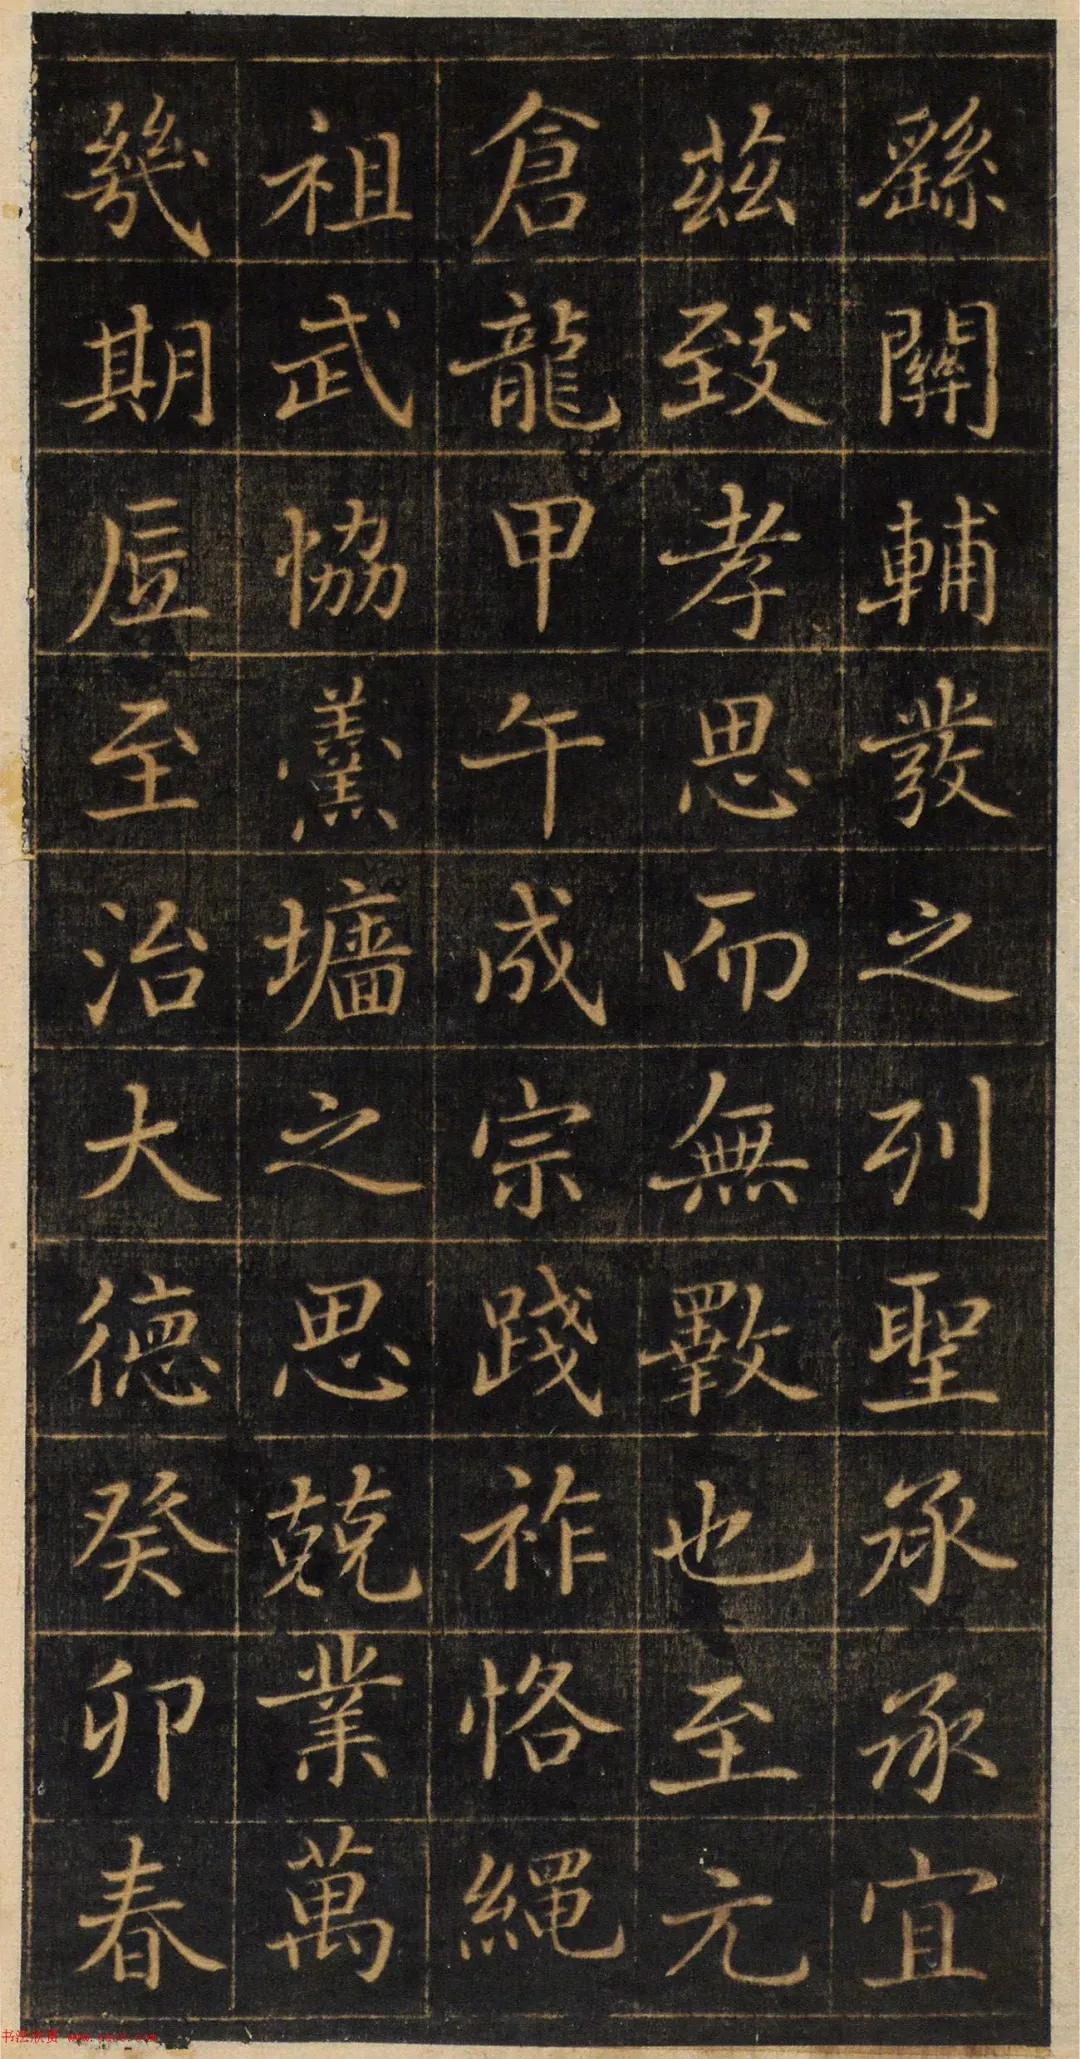 繇關輔發之列聖承承宜
茲致孝思而無斁也至元
倉龍甲午成宗踐祚恪繩
祖武協羹墻之思兢業萬
幾期底至治大德癸卯春
书法欣赏